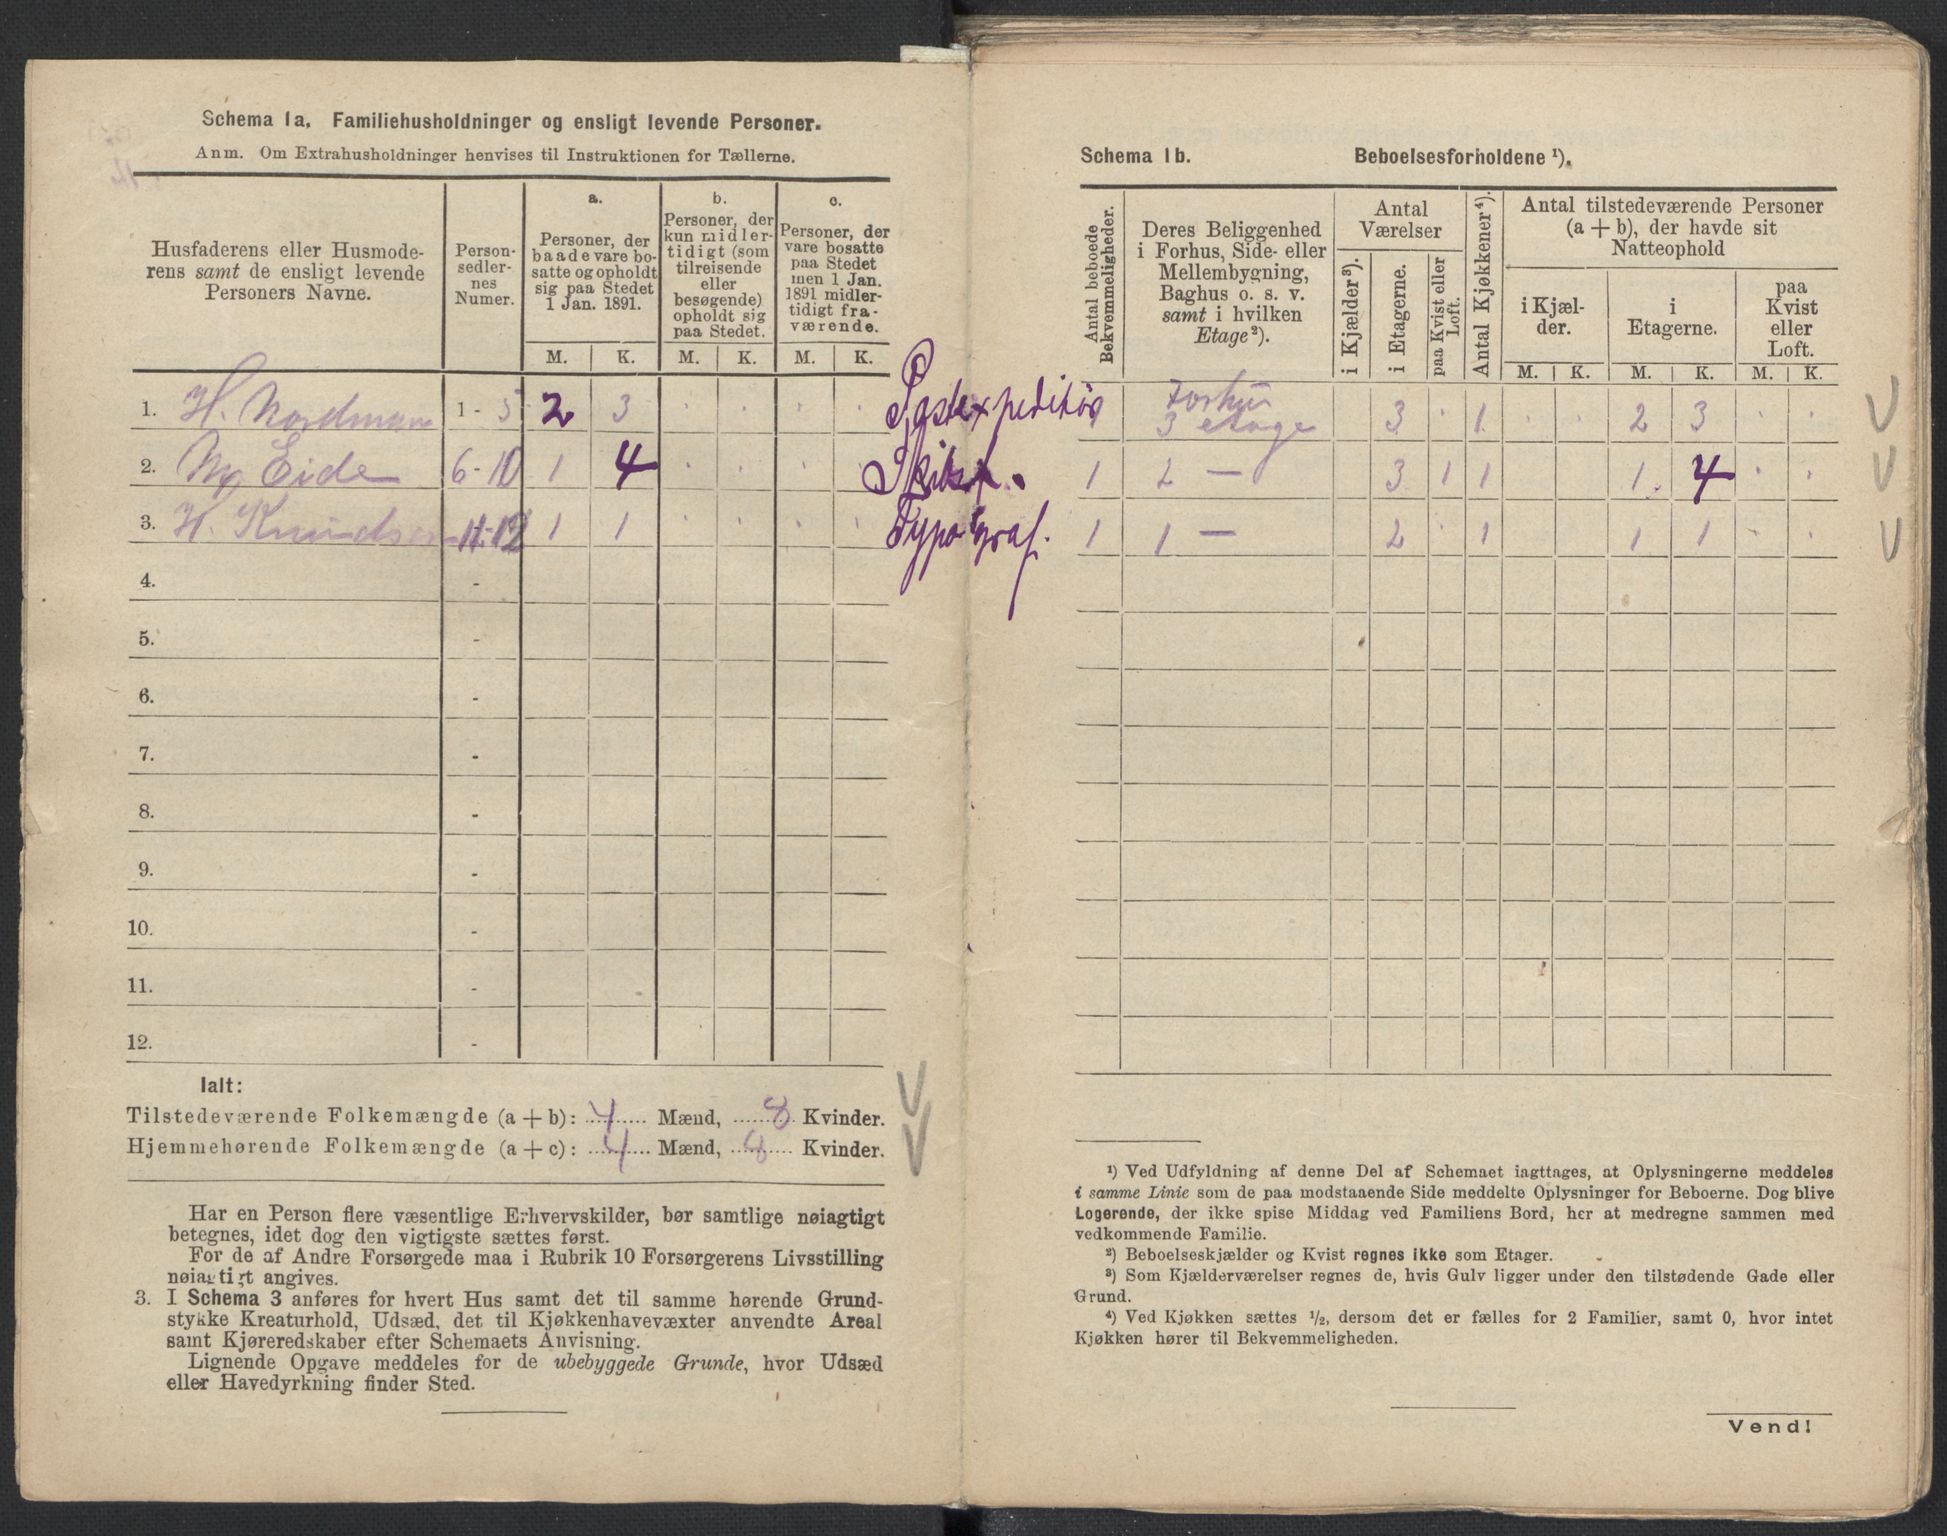 Schema 1a. Familiehusholdninger og ensligt levende Personer.
Anm. Om Extrahusholdninger henvises til Instruktionen for Tællerne.
Husfaderens eller Husmoderens samt de ensligt levende Personers Navne.
Personsedlernes Numer.
a. Personer, der baade vare bosatte og opholdt sig paa Stedet 1 Jan. 1891.
b. Personer, der kun midlertidigt (som tilreisende eller besøgende) opholdt sig paa Stedet.
c. Personer, der vare bosatte paa Stedet men 1 Jan. 1891 midlertidigt fraværende.
M. K. M. K. M. K.
1. H. Nordman 1 - 5 2 3 Postexpeditør
2. M Eide 6 - 10 1 4
3. H. Knudsen 11-12 1 1 Typograf.
4. -
5. -
6. -
7. -
8. -
9. -
10. -
11. -
12. -
Ialt:
Tilstedeværende Folkemængde (a + b): 4 Mænd, 8 Kvinder.
Hjemmehørende Folkemængde (a + c): 4 Mænd, 8 Kvinder.
Har en Person flere væsentlige Erhvervskilder, bør samtlige nøiagtigt
betegnes, idet dog den vigtigste sættes først.
For de af Andre Forsørgede maa i Rubrik 10 Forsørgerens Livsstilling
nøiagtigt angives.
3. I Schema 3 anføres for hvert Hus samt det til samme hørende Grund-
stykke Kreaturhold, Udsæd, det til Kjøkkenhavevæxter anvendte Areal
samt Kjøreredskaber efter Schemaets Anvisning.
Lignende Opgave meddeles for de ubebyggede Grunde, hvor Udsæd
eller Havedyrkning finder Sted.
Schema 1b. Beboelsesforholdene ¹).
Antal beboede Bekvemmeligheder.
Deres Beliggenhed i Forhus, Side- eller Mellembygning, Baghus o. s. v. samt i hvilken Etage²).
Antal Værelser
i Kjælder³).
i Etagerne.
paa Kvist eller Loft.
Antal Kjøkkener⁴).
Antal tilstedeværende Personer (a + b), der havde sit Natteophold
i Kjælder.
i Etagerne.
paa Kvist eller Loft.
M. K. M. K. M. K.
Forhus
3 etage 3 1 2 3
1 2 — 3 1 1 1 4
1 1 — 2 1 1 1
¹) Ved Udfyldning af denne Del af Schemaet iagttages, at Oplysningerne meddeles
i samme Linie som de paa modstaaende Side meddelte Oplysninger for Beboerne. Dog blive
Logerende, der ikke spise Middag ved Familiens Bord, her at medregne sammen med
vedkommende Familie.
²) Beboelseskjælder og Kvist regnes ikke som Etager.
³) Som Kjælderværelser regnes de, hvis Gulv ligger under den tilstødende Gade eller
Grund.
⁴) Ved Kjøkken sættes ½, dersom det er fælles for 2 Familier, samt 0, hvor intet
Kjøkken hører til Bekvemmeligheden.
Vend!